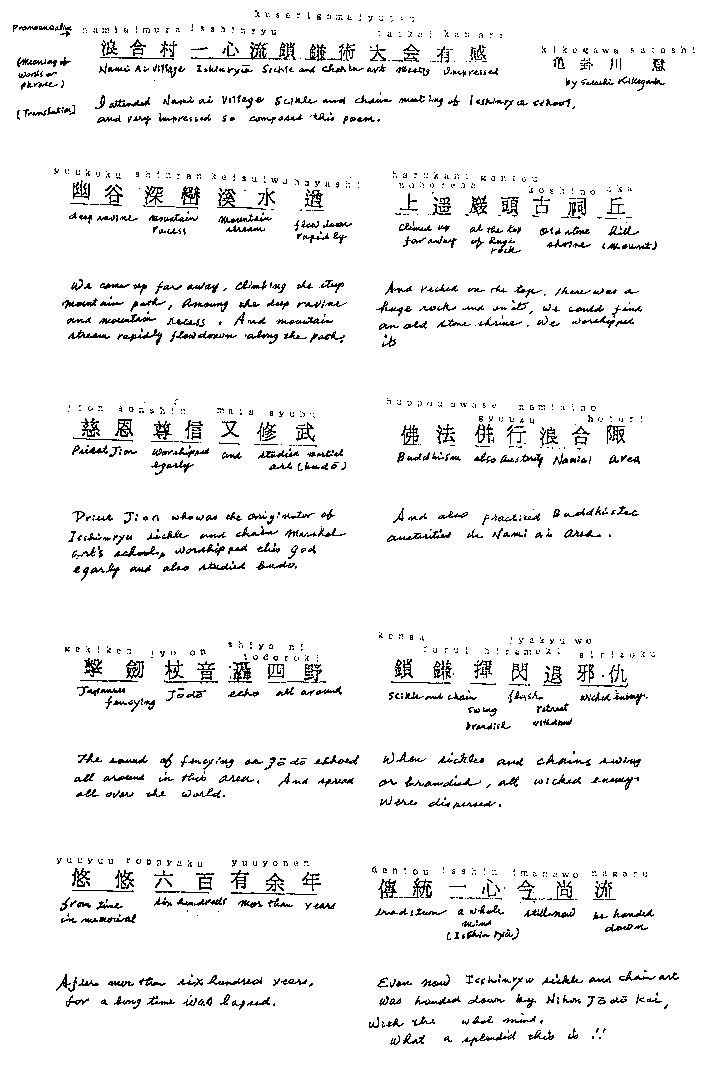 kusarigamajyutsu
Pronounciation → namiaimura isshinryu taikai kan ari
浪合村一心流鎖鎌術大会有感
kikogawa satoshi
亀卦川
(Meaning of words or phrase)
Nami Ai Village Isshinryū Sickle and Chain art Meeting Impressed
by Satoshi Kikogawa
(Translation)
I attended Nami ai Village Scikle and chain meeting of Isshinryu school,
and very impressed so composed this poem.
yuukoku shinran keisui wa hayashi
幽谷深巒溪水遒
deep ravine mountain recess mountain stream flow down rapidly
We came up far away, climbing the steep
mountain path, Amoung the deep ravine
and mountain recess. And mountain
stream rapidly flowdown along the path.
harukani gantou
noboreba koshino oka
上遥巌頭古祠丘
climed up far away at the top of huge rock old stone shrine hill (mount)
And reched on the top, there was a
huge rock and on it, we could find
an old stone shrine. We worshipped
it
jion sonshin mata syubu
慈恩尊信又修武
Priest Jion worshipped egarly and studied martial art (budō)
Priest Jion who was the originator of
Isshinryu sickle and chain Marshal
art's school, worshipped this god
egarly and also studied budo.
buppou awase namiaino
gyouzu hotori
佛法併行浪合陬
Buddhism also austerity Namiai area
And also practiced Buddhistec
austerities in Nami ai area.
gekiken jyo on shiya ni
todoroki
撃劒杖音轟四野
Japanese fencying Jōdō echo all around
The sound of fencying or Jōdō echoed
all around in this area. And spread
all over the world.
kensa jyakyu wo
furui hirameki sirizoku
鎖鎌揮閃退邪仇
scickle and chain swing brandish flash retreat withdraw wicked enemy.
When sickles and chains swing
or brandish, all wicked enemy
were dispersed.
yuuyuu roppyaku yuuyonen
悠悠六百有余年
from time in memorial six hundreds mor than years
After mor than six hundred years,
for a long time was lapsed.
dentou isshin imanao nagaru
傳統一心今尚流
tradition a whole mind (Isshin ryū) still now be handed down
Even now Isshinryu sickle and chain art
was handed down by Nihon Jōdō Kai,
with the whol mind.
What a splendid this is !!